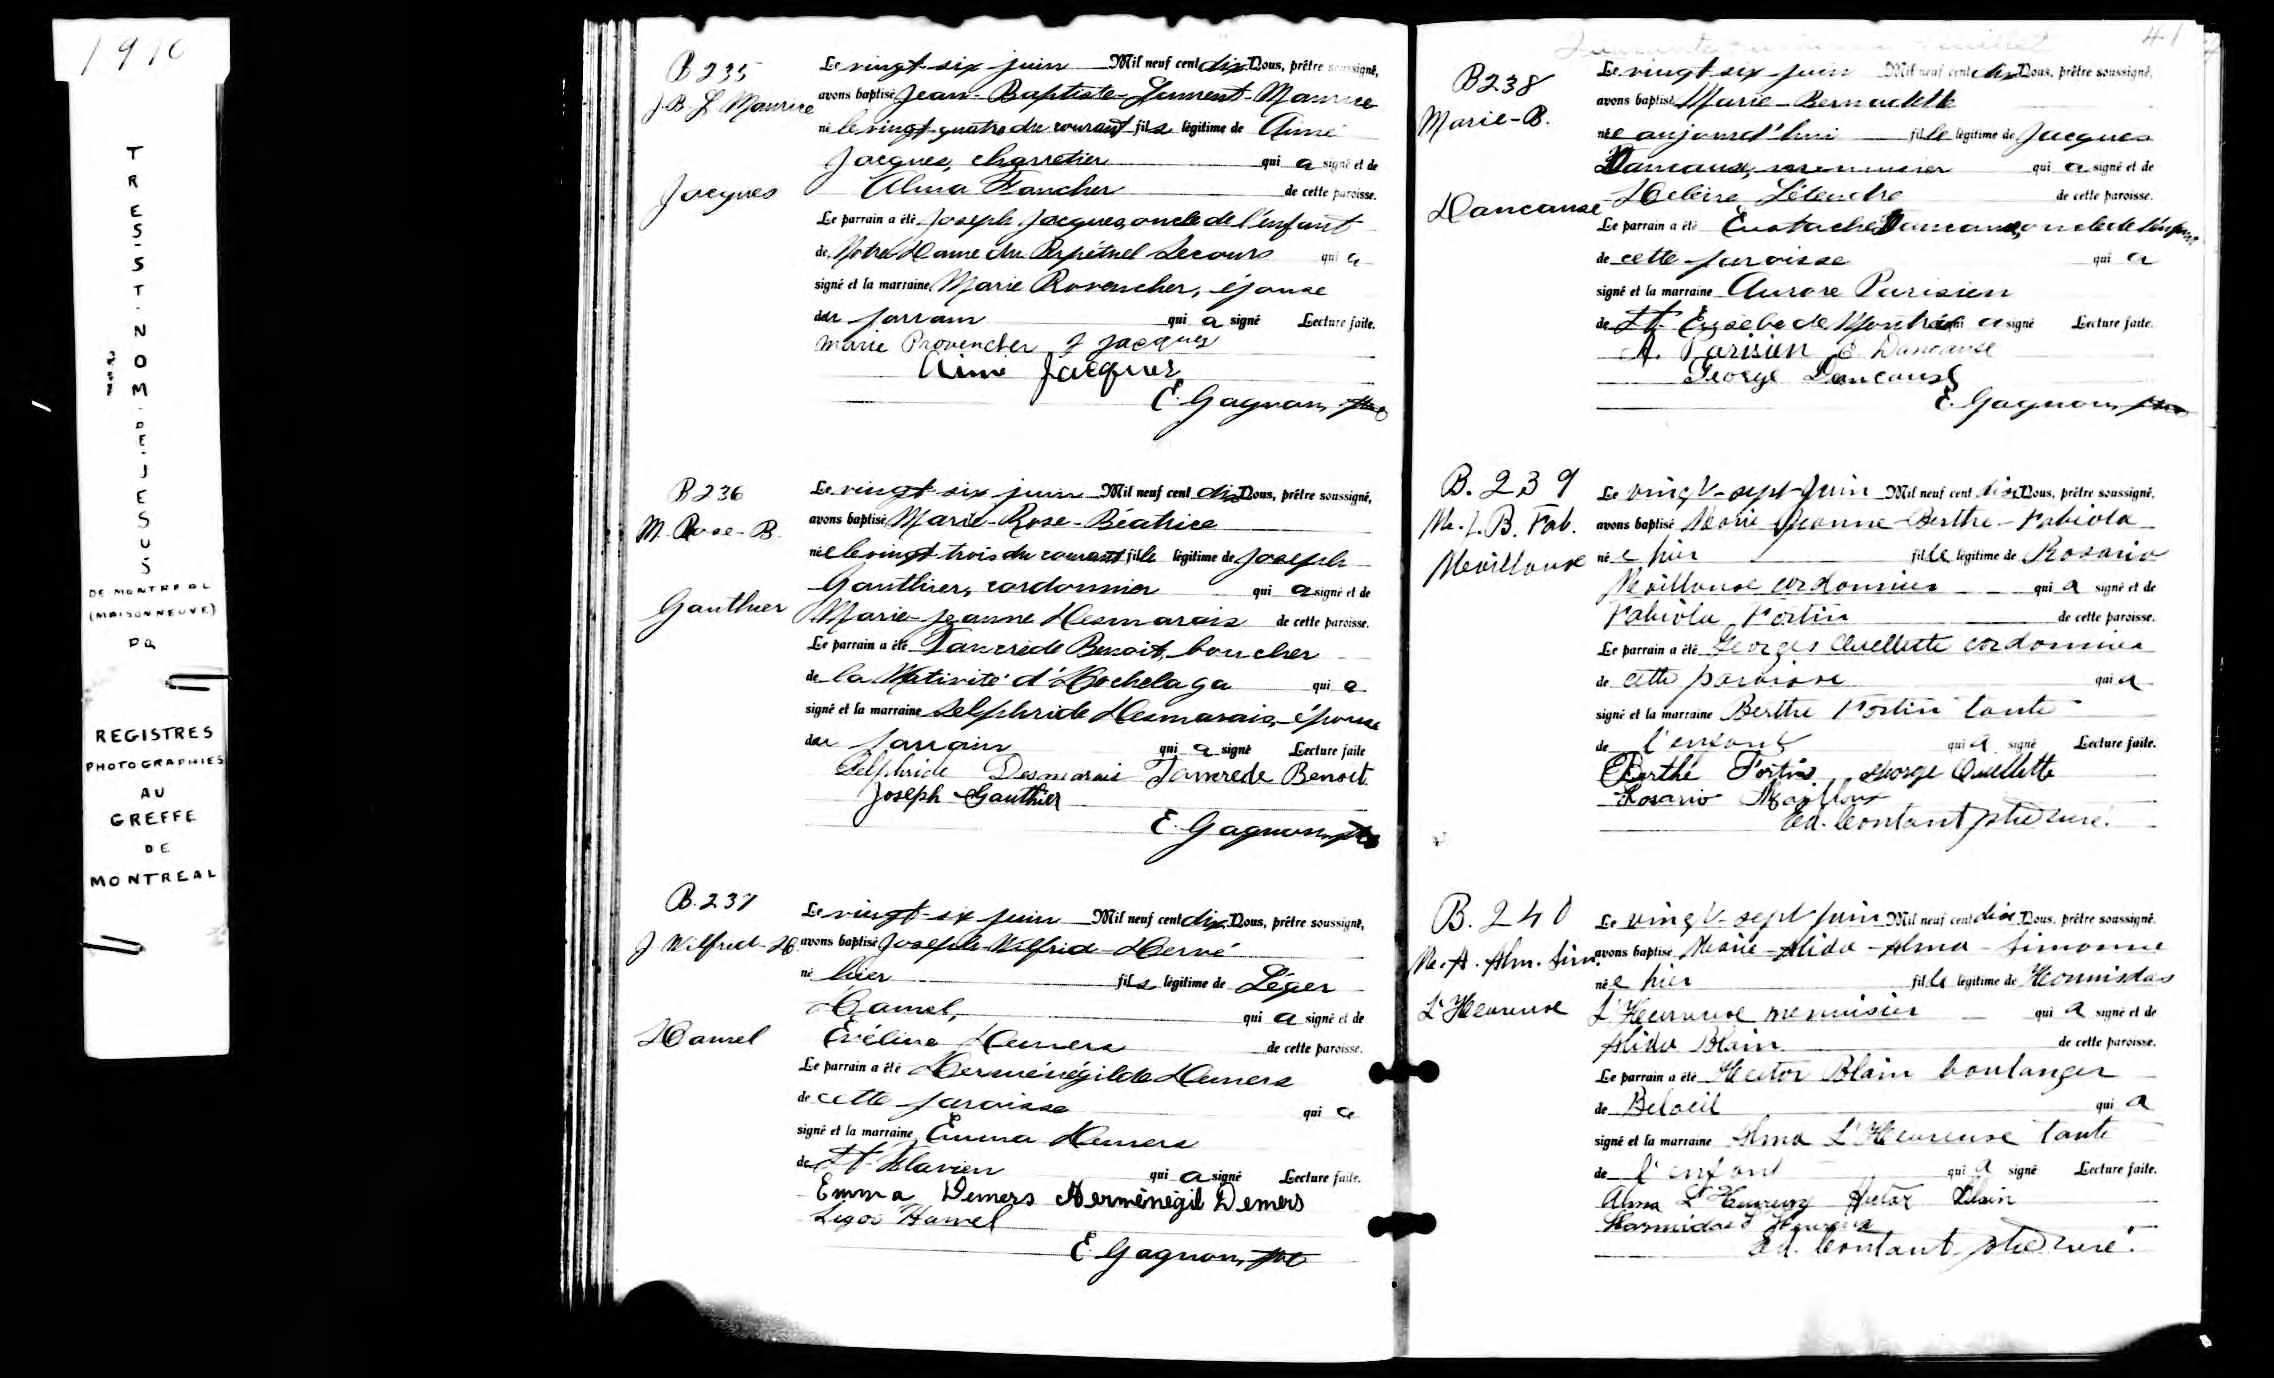 1910
TRES-ST-NOM-DE-JESUS
DE MONTREAL
(MAISONNEUVE)
PQ
REGISTRES
PHOTOGRAPHIES
AU
GREFFE
DE
MONTREAL
B 235
J. B. L. Maurice
Jacques
Le vingt-six juin Mil neuf cent dix Nous, prêtre soussigné,
avons baptisé Jean-Baptiste-Laurent-Maurice
né le vingt-quatre du courant fils légitime de Aimé
Jacques, charretier qui a signé et de
Alma Faucher de cette paroisse.
Le parrain a été Joseph Jacques, oncle de l'enfant
de Notre Dame du Perpétuel Secours qui a
signé et la marraine Marie Provencher, épouse
du parrain qui a signé Lecture faite.
Marie Provencher J Jacques
Aimé Jacques
E. Gagnon, ptre
B 236
M. Rose-B.
Gauthier
Le vingt-six juin Mil neuf cent dix Nous, prêtre soussigné,
avons baptisé Marie-Rose-Béatrice
née le vingt-trois du courant fille légitime de Joseph
Gauthier, cordonnier qui a signé et de
Marie-Jeanne Desmarais de cette paroisse.
Le parrain a été Tancrède Benoit, boucher
de la Nativité d'Hochelaga qui a
signé et la marraine Delphride Desmarais, épouse
du parrain qui a signé Lecture faite
Delphride Desmarais Tancrede Benoit
Joseph Gauthier
E. Gagnon, ptre
B. 237
J Wilfrid-H
Hamel
Le vingt-six juin Mil neuf cent dix Nous, prêtre soussigné,
avons baptisé Joseph-Wilfrid-Hervé
né hier fils légitime de Léger
Hamel, qui a signé et de
Éveline Demers de cette paroisse.
Le parrain a été Herménégilde Demers
de cette paroisse qui a
signé et la marraine Emma Demers
de St-Flavien qui a signé Lecture faite.
Emma Demers Herménégil Demers
Léger Hamel
E. Gagnon, ptre
41
B 238
Marie-B.
Dancause
Le vingt-six juin Mil neuf cent dix Nous, prêtre soussigné,
avons baptisé Marie-Bernadette
née aujourd'hui fille légitime de Jacques
Dancause, menuisier qui a signé et de
Hélène Létendre de cette paroisse.
Le parrain a été Eustache Dancause, oncle de l'enfant
de cette paroisse qui a
signé et la marraine Aurore Parisien
de St-Eusèbe de Montréal qui a signé Lecture faite.
A. Parisien E Dancause
George Dancause
E. Gagnon, ptre
B. 239
M. J. B. Fab.
Mailloux
Le vingt-sept Juin Mil neuf cent dix Nous, prêtre soussigné,
avons baptisé Marie Jeanne-Berthe-Fabiola
née hier fille légitime de Rosario
Mailloux cordonnier qui a signé et de
Fabiola Fortin de cette paroisse.
Le parrain a été Georges Ouellette cordonnier
de cette paroisse qui a
signé et la marraine Berthe Fortin tante
de l'enfant qui a signé Lecture faite.
Berthe Fortin George Ouellette
Rosario Mailloux
Ed. Contant ptre curé.
B. 240
M. A. Alm. Sim.
L'Heureux
Le vingt-sept juin Mil neuf cent dix Nous, prêtre soussigné.
avons baptisé Marie-Alida-Alma-Simonne
née hier fille légitime de Hormisdas
L'Heureux menuisier qui a signé et de
Alida Blain de cette paroisse.
Le parrain a été Hector Blain boulanger
de Beloeil qui a
signé et la marraine Alma L'Heureux tante
de l'enfant qui a signé Lecture faite.
Alma L'Heureux Hector Blain
Hormidas L'Heureux
Ed. Contant ptre curé.